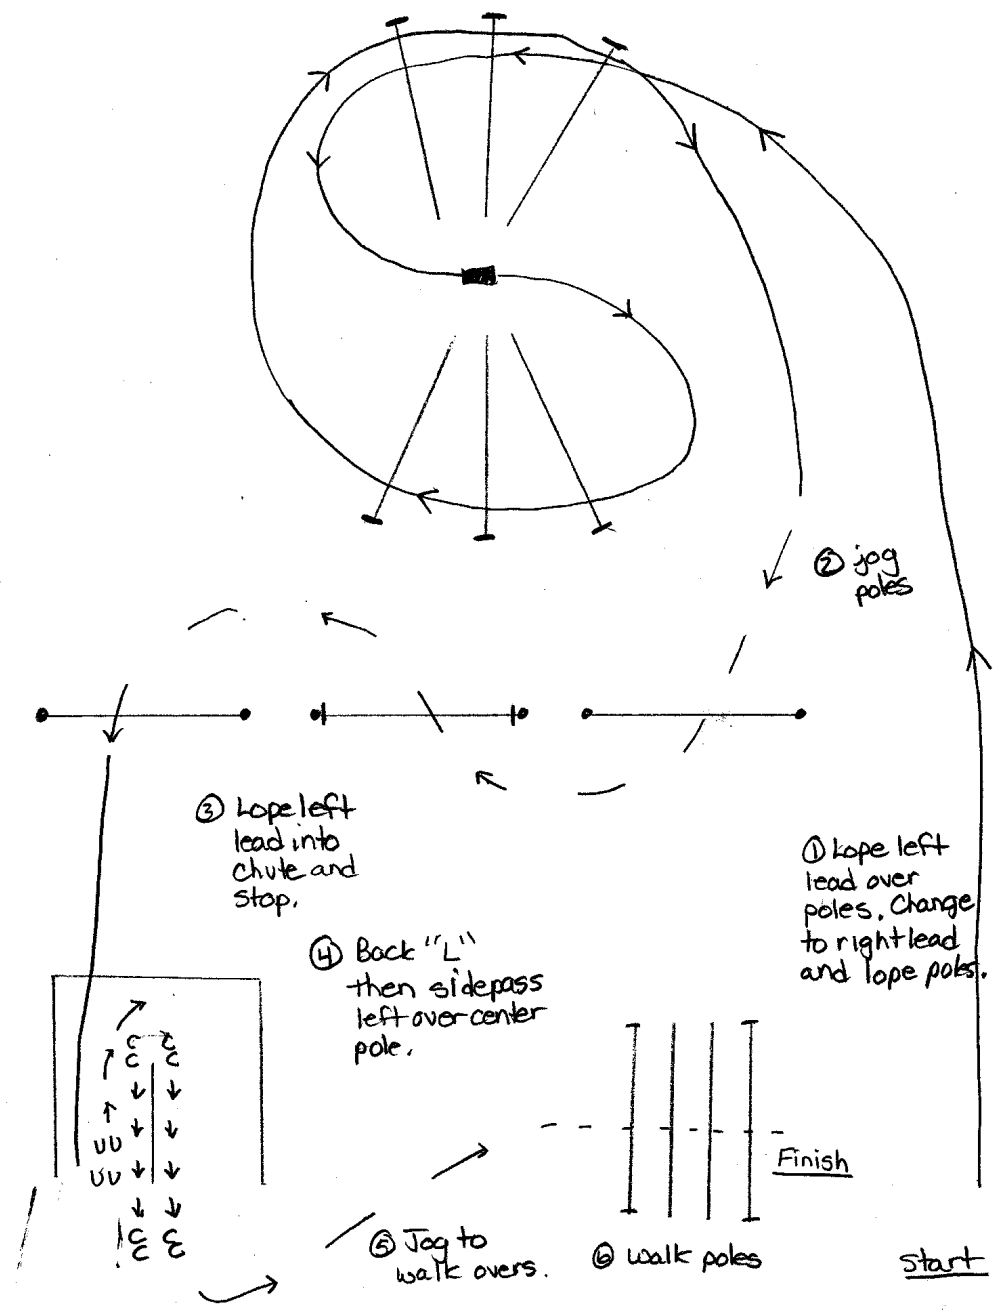 ② jog
poles
③ Lope left
lead into
chute and
stop.
① Lope left
lead over
poles. Change
to right lead
and lope poles.
④ Back "L"
then sidepass
left over center
pole.
Finish
⑤ Jog to
walk overs.
⑥ walk poles
Start